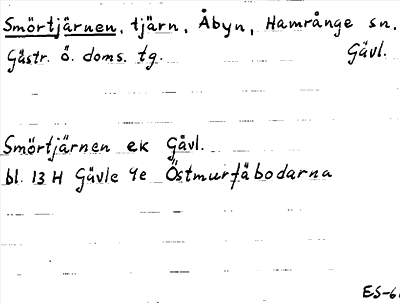 Smörtjärnen, tjärn, Åbyn, Hamrånge sn.
Gästr. ö. doms. tg. Gävl.
Smörtjärnen ek Gävl.
bl. 13 H Gävle 4e Östmurfäbodarna
ES-6